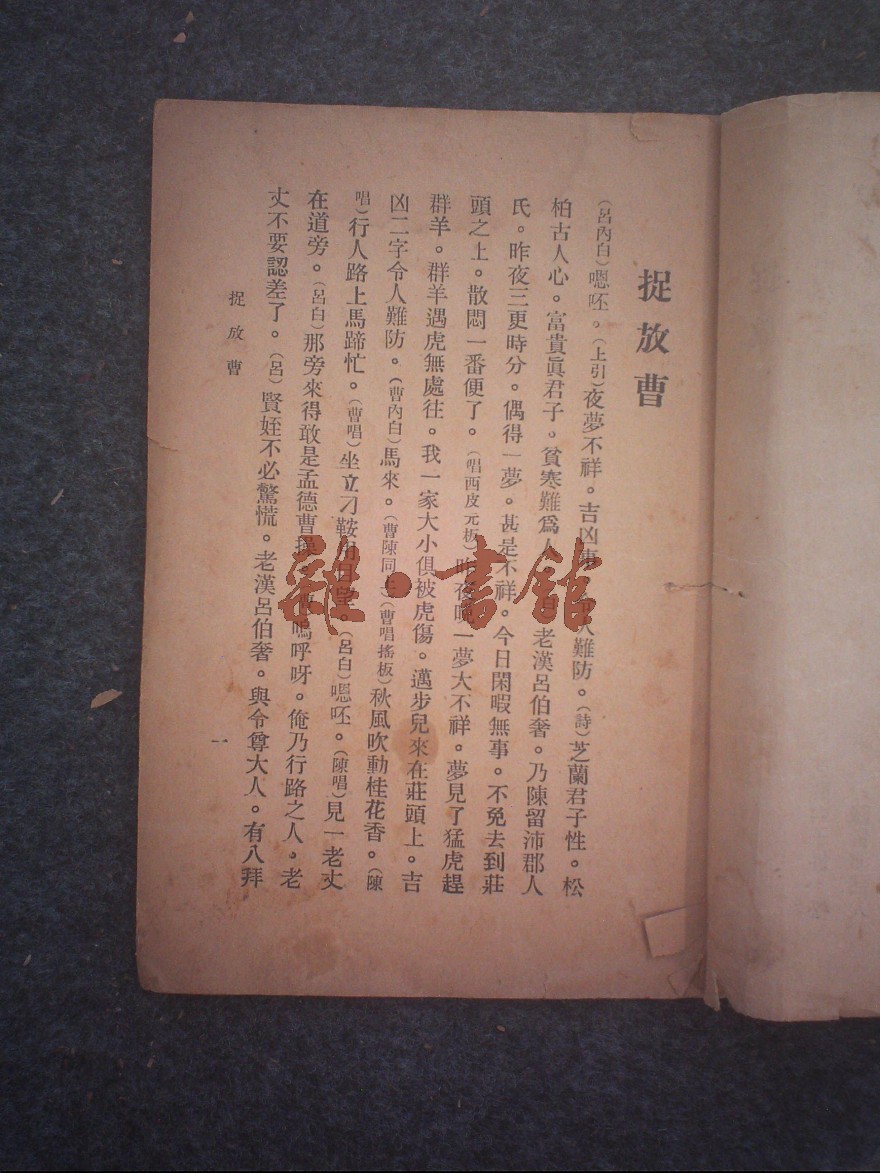 捉放曹
（呂內白）嗯呸。（上引）夜夢不祥。吉凶事人難防。（詩）芝蘭君子性。松
柏古人心。富貴眞君子。貧寒難爲人老漢呂伯奢。乃陳留沛郡人
氏。昨夜三更時分。偶得一夢。甚是不祥。今日閑暇無事。不免去到莊
頭之上。散悶一番便了。（唱西皮元板）昨夜晚一夢大不祥。夢見了猛虎趕
群羊。群羊遇虎無處往。我一家大小俱被虎傷。邁步兒來在莊頭上。吉
凶二字令人難防。（曹內白）馬來。（曹陳同上）（曹唱搖板）秋風吹動桂花香。（陳
唱）行人路上馬蹄忙。（曹唱）坐立刁鞍（呂白）嗯呸。（陳唱）見一老丈
在道旁。（呂白）那旁來得敢是孟德曹操。嗚呼呀。俺乃行路之人。老
丈不要認差了。（呂）賢姪不必驚慌。老漢呂伯奢。與令尊大人。有八拜
捉放曹
一
雜·書館